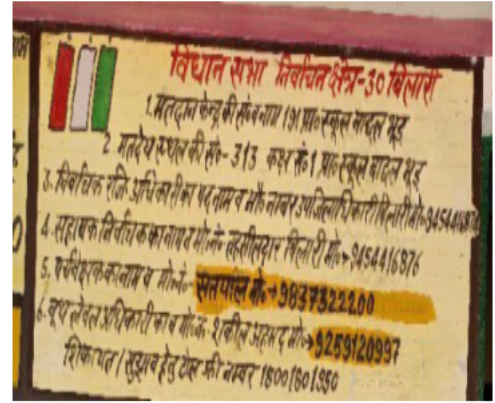 विधान सभा निर्वाचन क्षेत्र-30 बिलारी
1. मतदान केन्द्र की सं० व नाम 191 प्रा० स्कूल बादल भूड़
2. मतदेय स्थल की सं०- 313 कक्ष सं० 1 प्रा० स्कूल बादल भूड़
3. निर्वाचक रजि० अधिकारी का पद नाम व मो० नम्बर उपजिलाधिकारी बिलारी मो०-
4. सहायक निर्वाचक का नाम व मो० नं० तहसीलदार बिलारी मो०→9454416876
5. पर्यवेक्षक का नाम व मो० नं०- सतपाल मो०→9837322200
6. बूथ लेवल अधिकारी का व मो० नं० शकील अहमद मो०→9259120997
शिकायत / सुझाव हेतु टोल फ्री नम्बर 18001801950